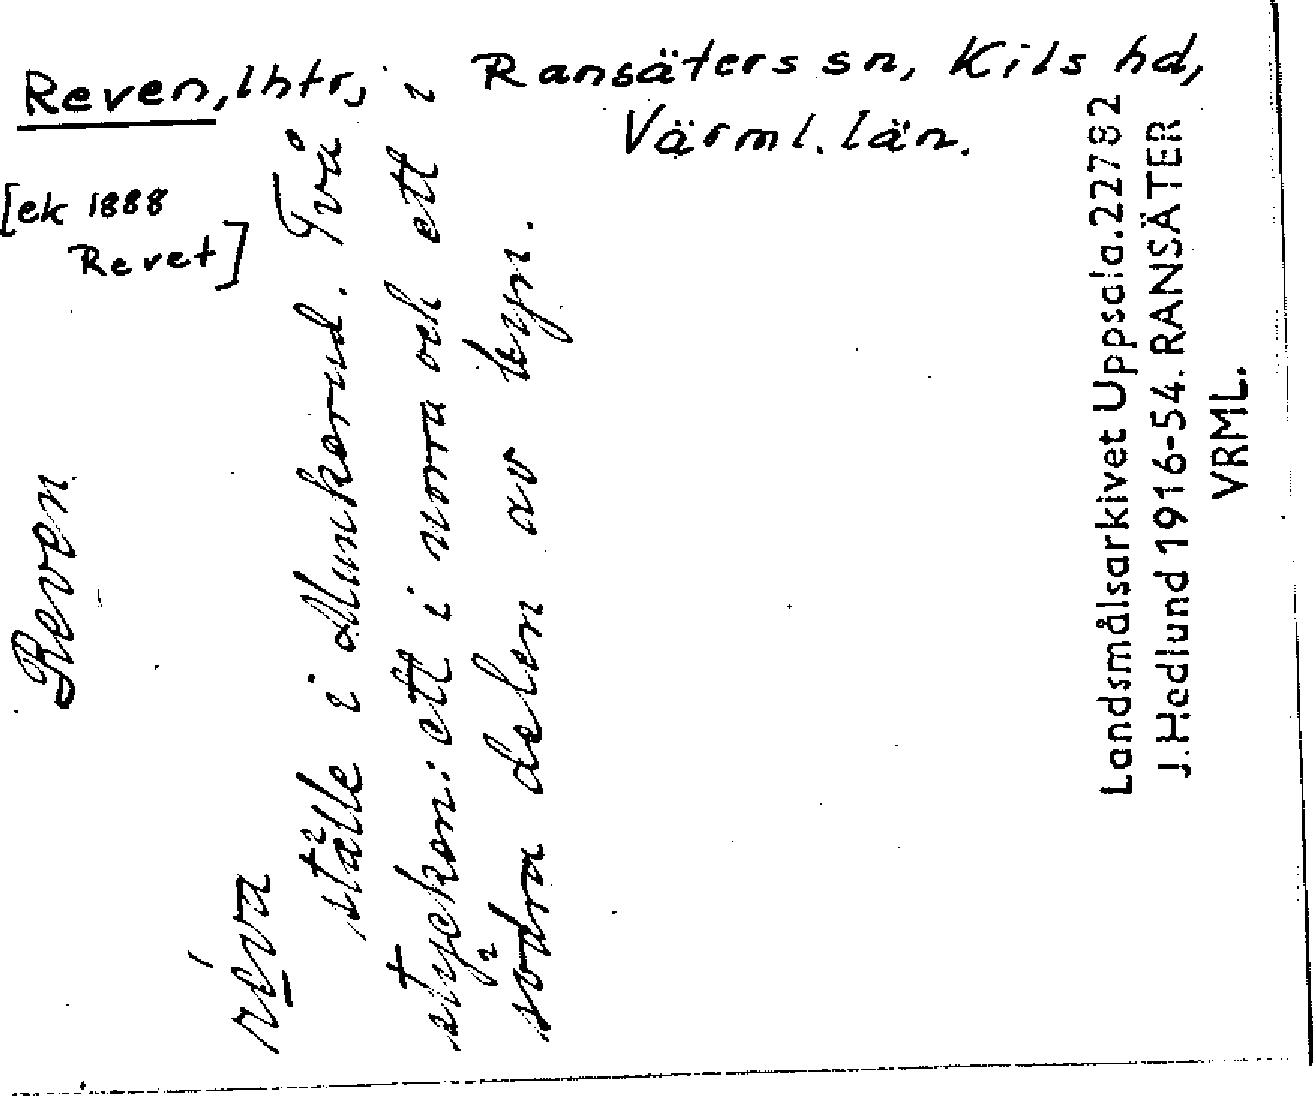 Reven, lhtr,
Ransäters sn, Kils hd,
Värml. län.
[ek 1888
Revet]
Reven
réva
ställe i Munkerud. Två
stycken: ett i norra och ett i
södra delen av byn.
Landsmålsarkivet Uppsala.22782
J.Hedlund 1916-54. RANSÄTER
VRML.